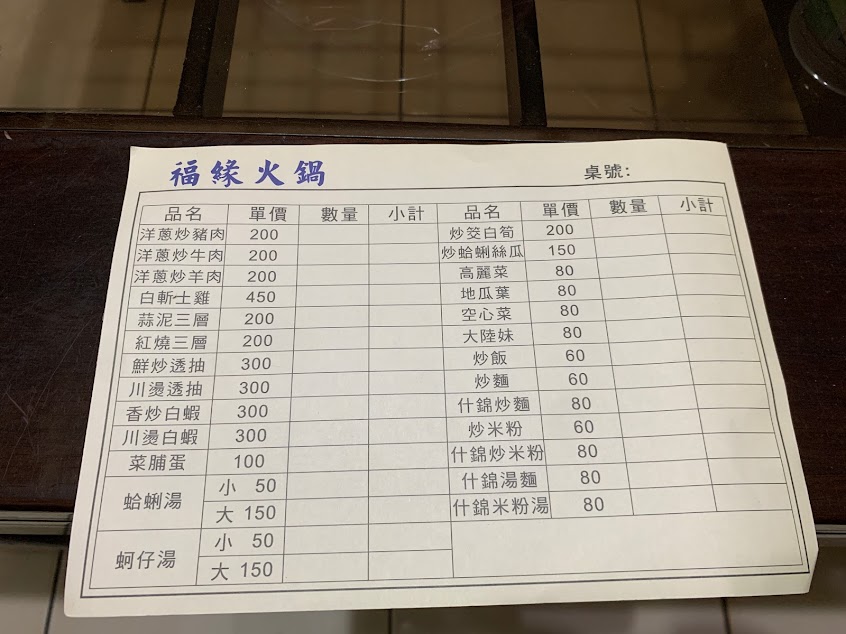 福緣火鍋
桌號:
品名 單價 數量 小計 品名 單價 數量 小計
洋蔥炒豬肉 200 炒筊白筍 200
洋蔥炒牛肉 200 炒蛤蜊絲瓜 150
洋蔥炒羊肉 200 高麗菜 80
白斬土雞 450 地瓜葉 80
蒜泥三層 200 空心菜 80
紅燒三層 200 大陸妹 80
鮮炒透抽 300 炒飯 60
川燙透抽 300 炒麵 60
香炒白蝦 300 什錦炒麵 80
川燙白蝦 300 炒米粉 60
菜脯蛋 100 什錦炒米粉 80
蛤蜊湯 小 50 什錦湯麵 80
大 150 什錦米粉湯 80
蚵仔湯 小 50
大 150